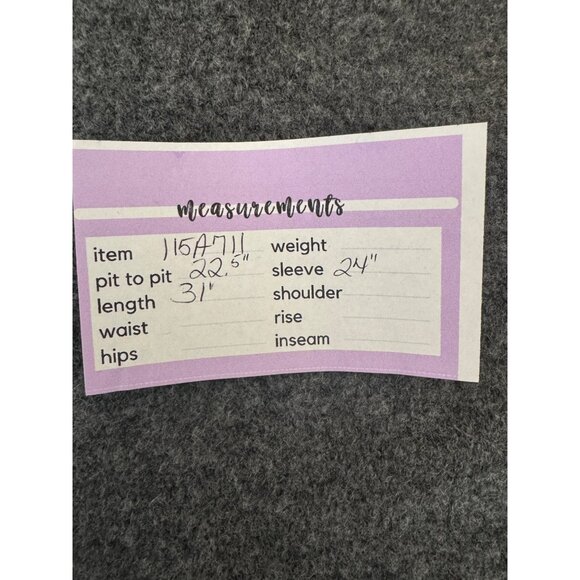 measurements
item 115A711 weight
pit to pit 22.5" sleeve 24"
length 31" shoulder
waist rise
hips inseam